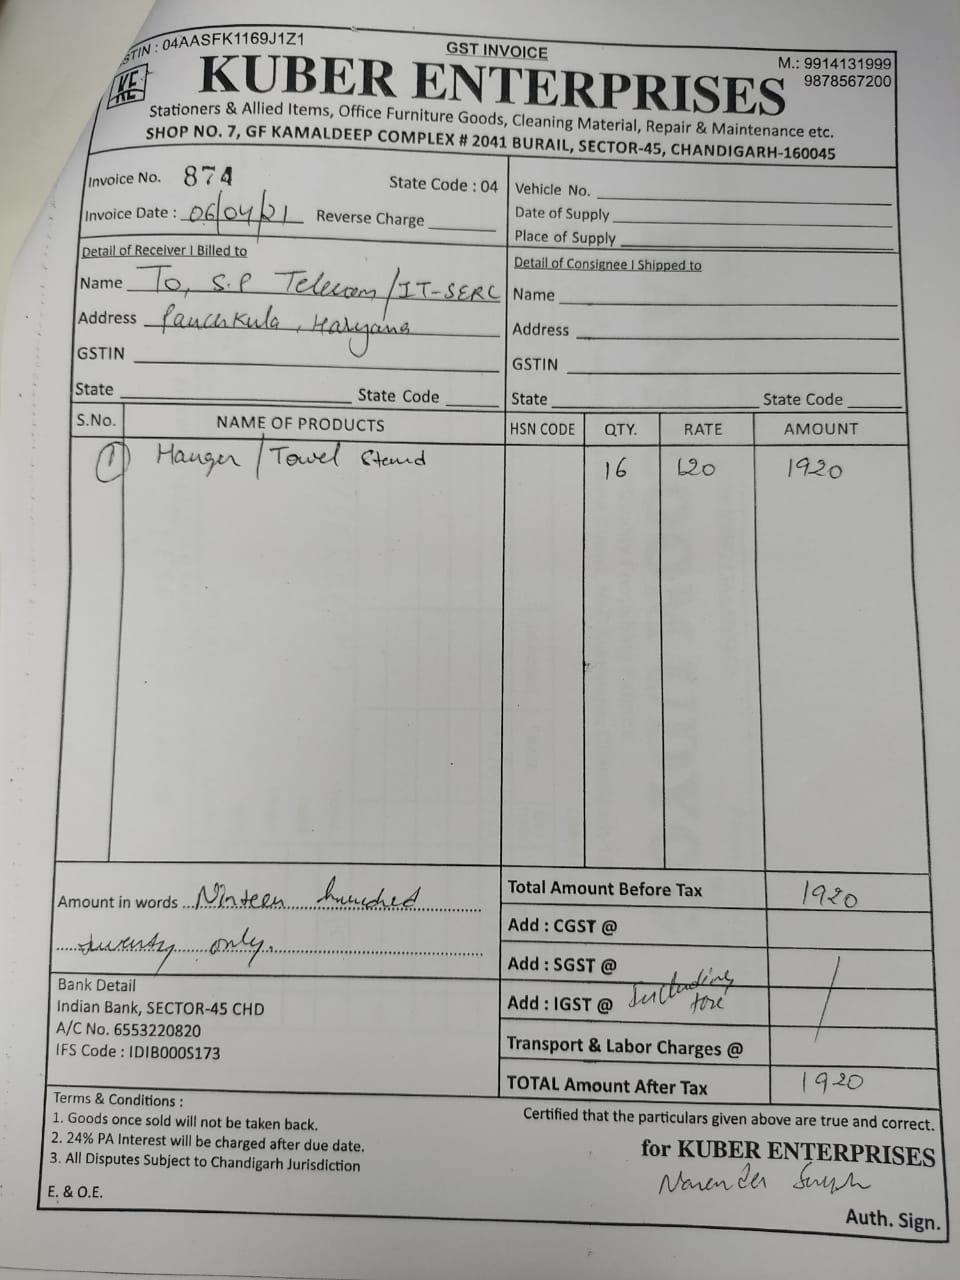 GST INVOICE
STIN : 04AASFK1169J1Z1
M.: 9914131999
9878567200
KE
KUBER ENTERPRISES
Stationers & Allied Items, Office Furniture Goods, Cleaning Material, Repair & Maintenance etc.
SHOP NO. 7, GF KAMALDEEP COMPLEX # 2041 BURAIL, SECTOR-45, CHANDIGARH-160045
Invoice No. 874 State Code : 04
Invoice Date : 06/04/21 Reverse Charge
Vehicle No.
Date of Supply
Place of Supply
Detail of Receiver I Billed to
Name To, S.P Telecom/IT-SERC
Address Panchkula, Haryana
GSTIN
State State Code
Detail of Consignee I Shipped to
Name
Address
GSTIN
State State Code
S.No. NAME OF PRODUCTS HSN CODE QTY. RATE AMOUNT
1 Hanger / Towel Stand 16 120 1920
Amount in words Ninteen hundred
twenty only.
Bank Detail
Indian Bank, SECTOR-45 CHD
A/C No. 6553220820
IFS Code : IDIB000S173
Total Amount Before Tax 1920
Add : CGST @
Add : SGST @
Add : IGST @ Including
Transport & Labor Charges @
TOTAL Amount After Tax 1920
Terms & Conditions :
1. Goods once sold will not be taken back.
2. 24% PA Interest will be charged after due date.
3. All Disputes Subject to Chandigarh Jurisdiction
E. & O.E.
Certified that the particulars given above are true and correct.
for KUBER ENTERPRISES
Narender Singh
Auth. Sign.